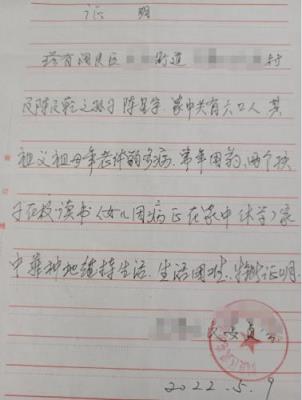 证 明
兹有 区 街道 村
民陈 之孙子陈 家中共有六口人 其
祖父祖母年老体弱多病,常年用药,两个孩
子在校读书(女儿因病正在家中休学)家
中靠种地维持生活,生活困难,特此证明.
2022.5.9